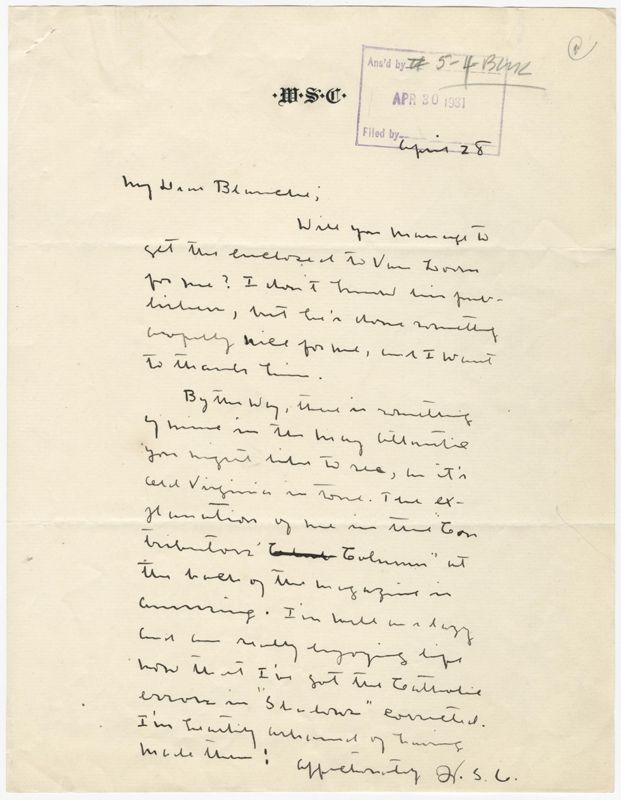 ·W·S·C·
Ans'd by # 5-4 BWK
APR 30 1931
Filed by
April 28
My Dear Blanche;
Will you manage to
get the enclosed to Van Loon
for me? I don't know his pub-
lishers, but he's done something
awfully nice for me, and I want
to thank him.
By the way, there is something
of mine in the May Atlantic
you might like to see, as it's
old Virginia in tone. The ex-
planation of me in the "Con
tributors' Column" at
the back of the magazine is
amusing. I'm well and lazy
and am really enjoying life
now that I've got the Catholic
errors in "Shadows" corrected.
I'm heartily ashamed of having
made them!
Affectionately W. S. C.